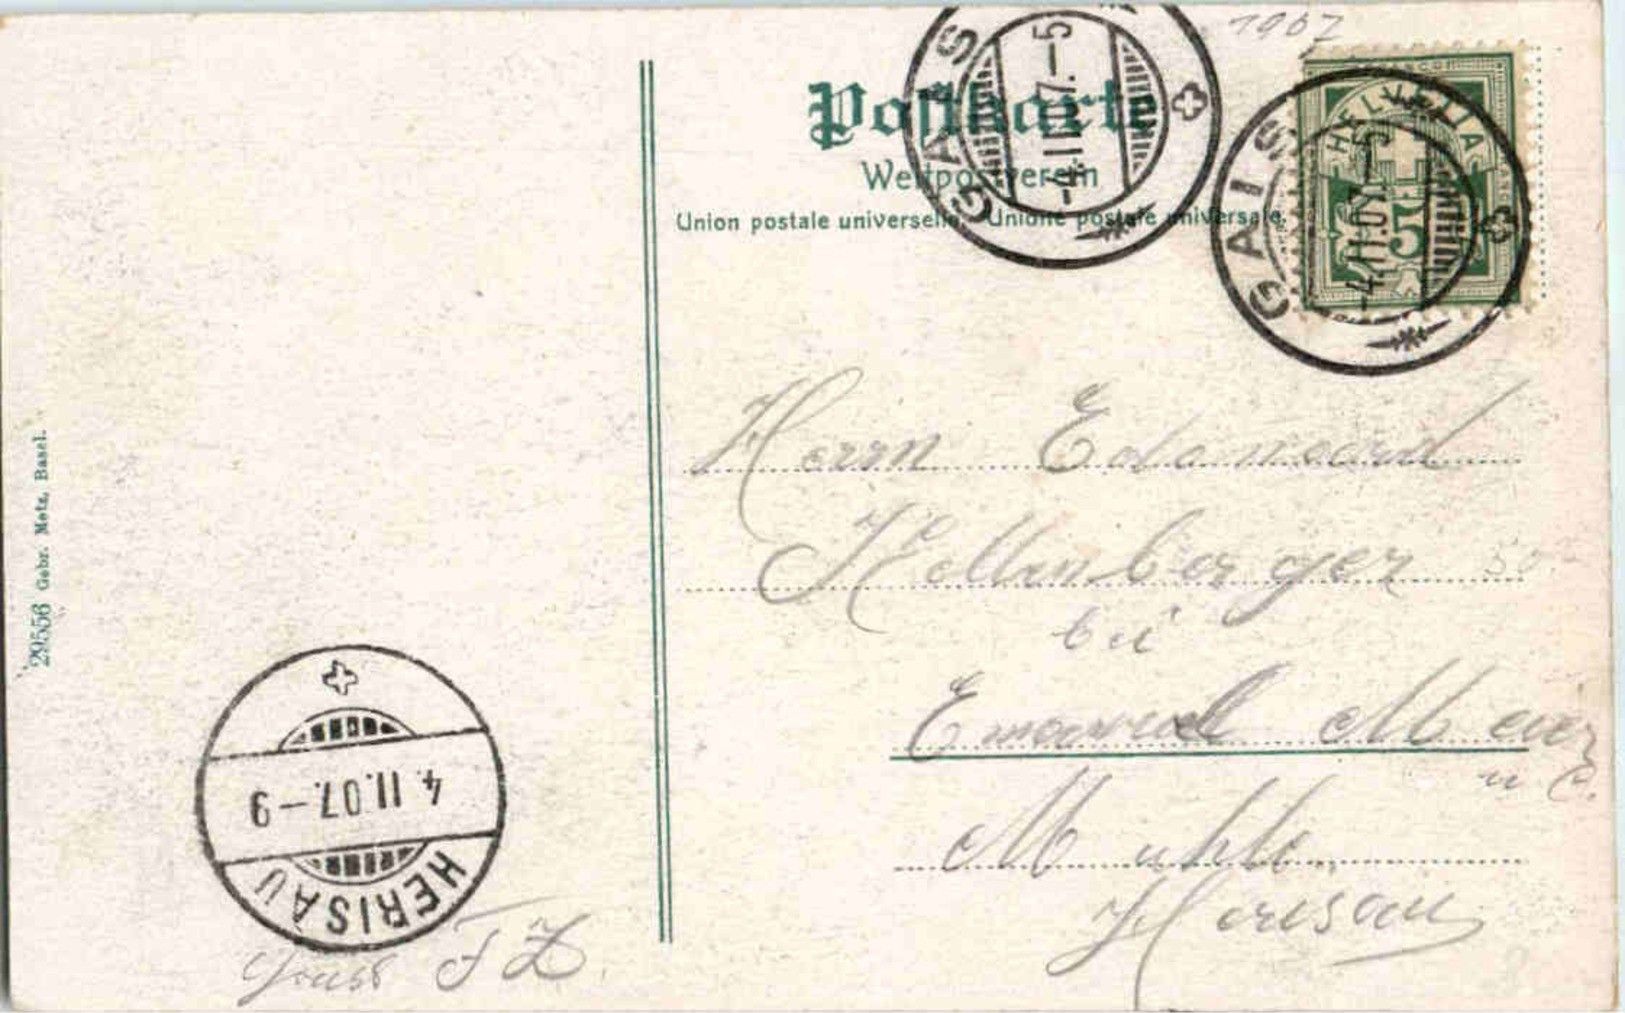 1907
Postkarte
Weltpostverein
Union postale universelle. Unione postale universale.
GAIS
-4.II.07.-5
GAIS
-4.II.07.-5
HELVETIA
5
Herrn Edamoard
Hellenberger
bei
Emanuel Meier
u C.
Muhle
Herisau
29556 Gebr. Metz, Basel.
4.II.07.-9
HERISAU
Gruss F Z.